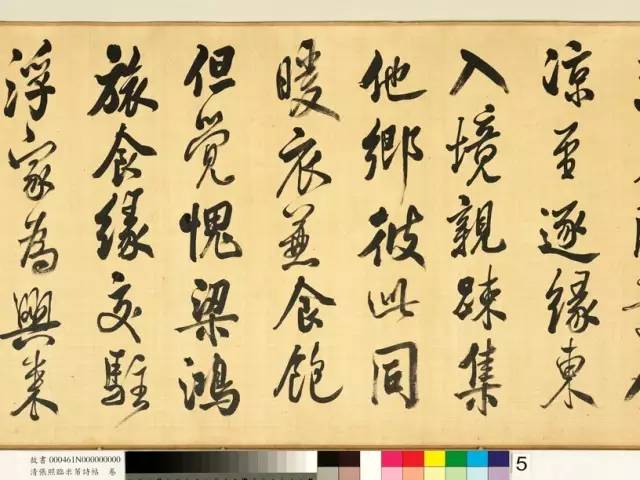 涼至逐緣東
入境親踈集
他鄉彼此同
暖衣兼食飽
但覺愧梁鴻
旅食緣交駐
浮家為興来
故書 000461N000000000
清張照臨米芾詩帖 卷
5